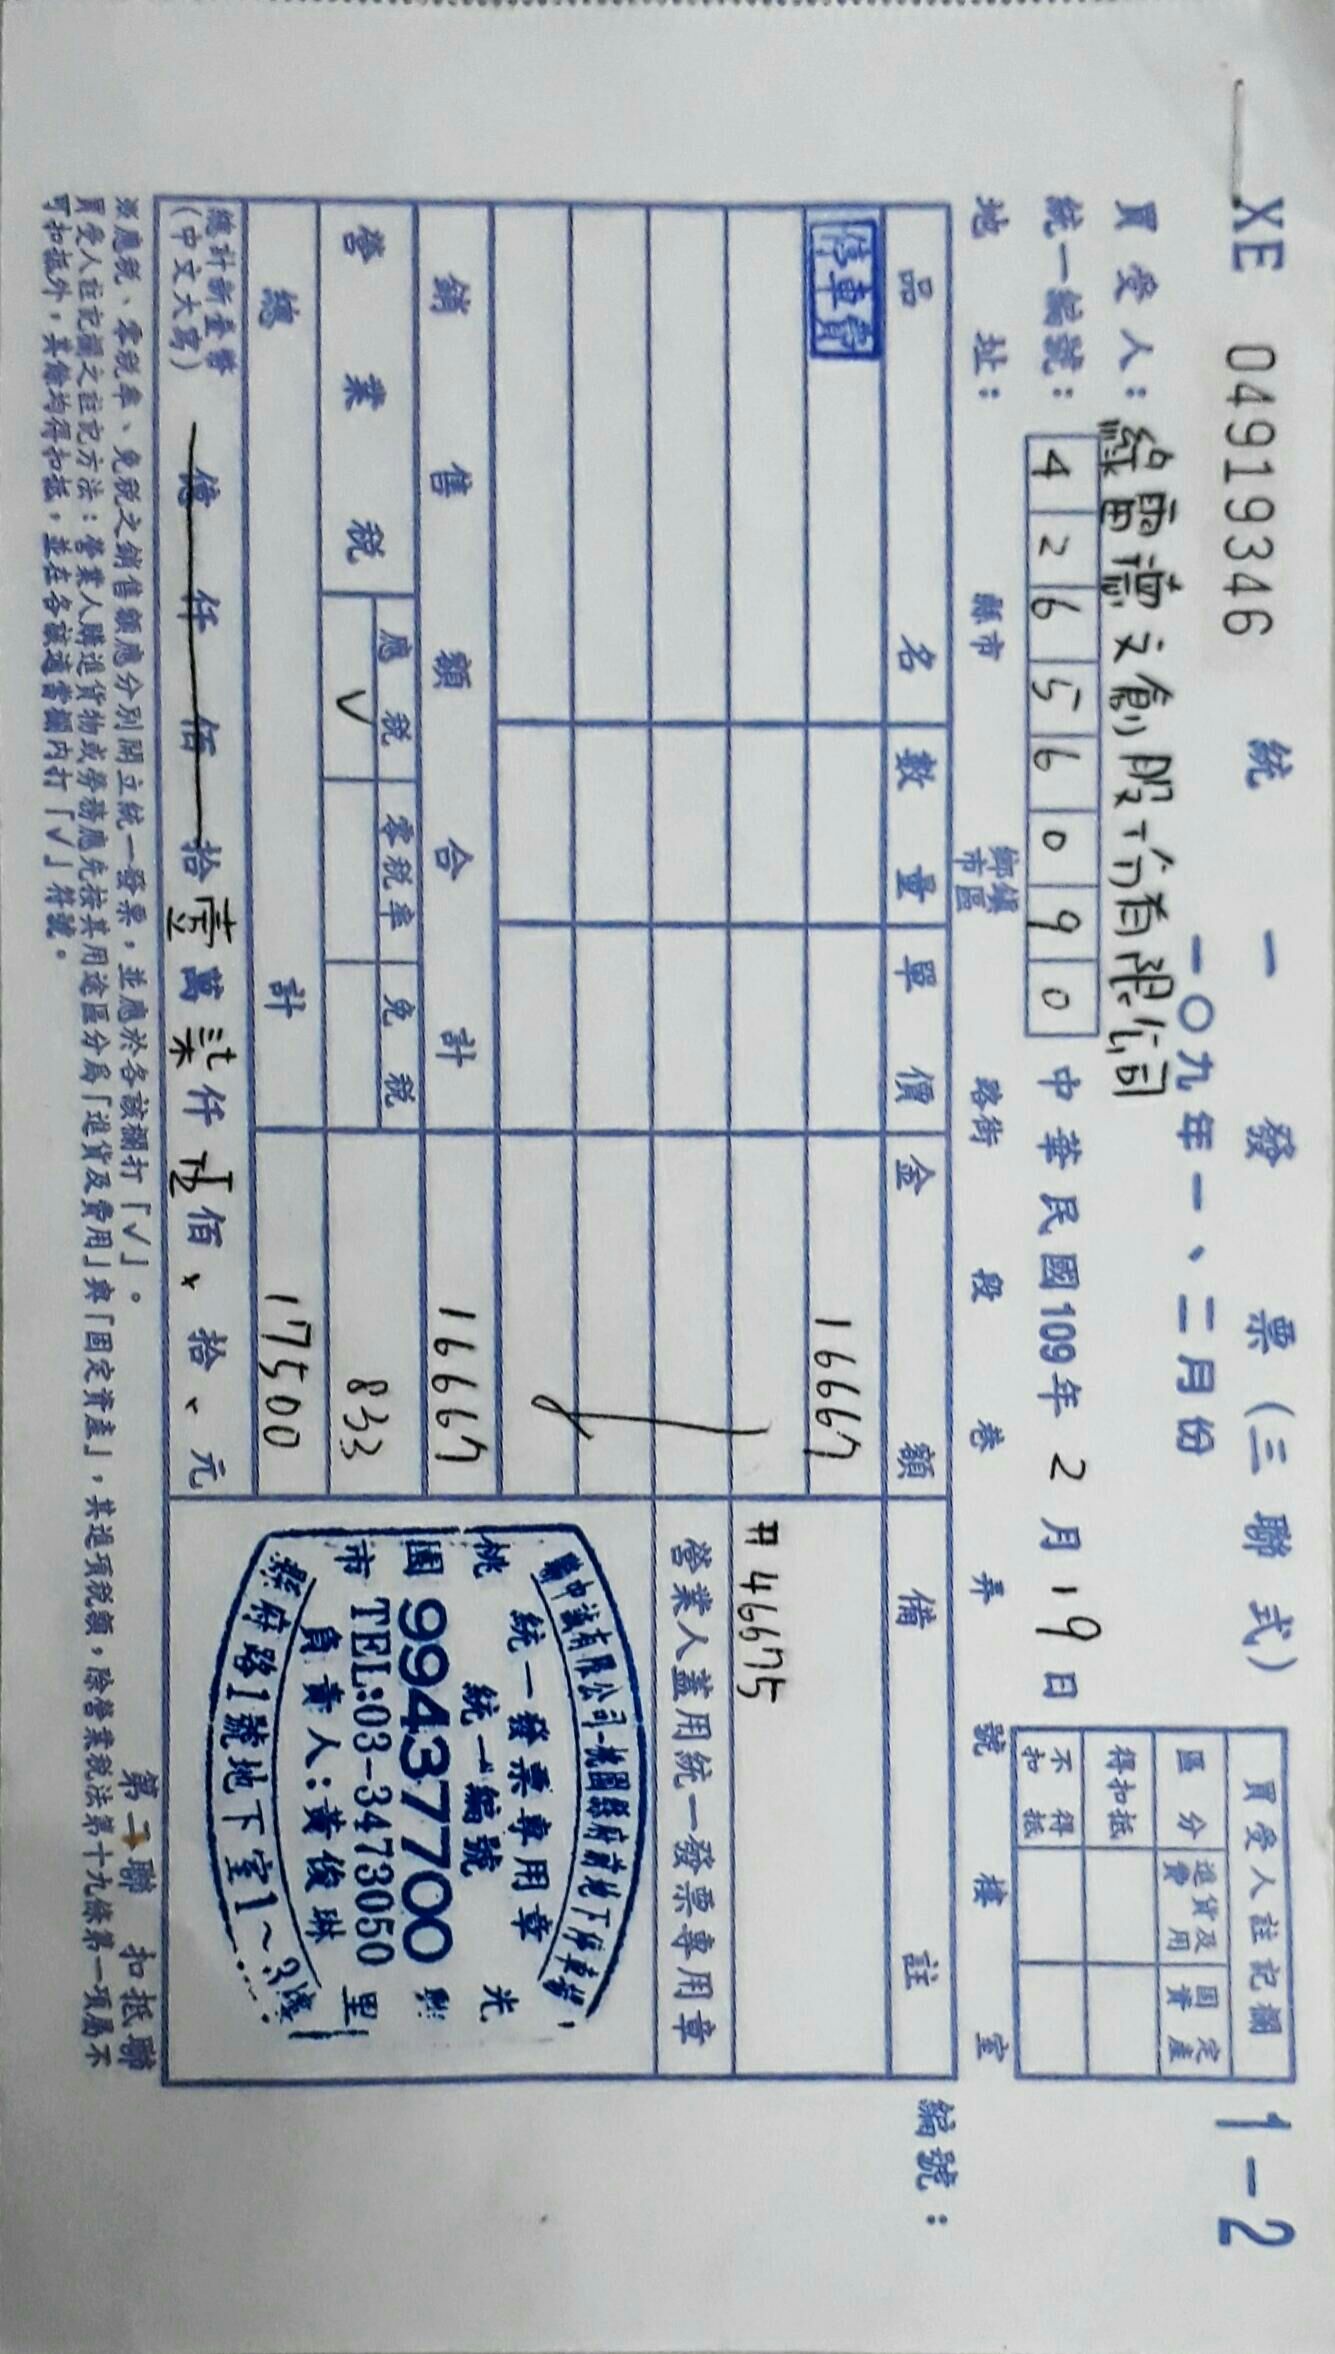 XE 04919346 統一發票(三聯式)
一〇九年一、二月份
1-2
買受人:綠雷德文創股份有限公司
統一編號:42656090 中華民國109年2月19日
地址: 縣市 鄉鎮市區 路街 段 巷 弄 號 樓 室
買受人註記欄
區分 進貨及費用 固定資產
得扣抵
不得扣抵
編號:
品名 數量 單價 金額 備註
停車費 16667
#46675
營業人蓋用統一發票專用章
銷售額合計 16667
營業稅 應稅 零稅率 免稅
V 833
總計 17500
總計新臺幣
(中文大寫)
億仟佰拾壹萬柒仟伍佰x拾、元
中誠有限公司-桃園縣府前地下停車場
統一發票專用章
統一編號
99437700
TEL:03-3473050
負責人:黃俊琳
桃園市 光興里
縣府路1號地下室1~3樓
※應稅、零稅率、免稅之銷售額應分別開立統一發票,並應於各該欄打「V」。
買受人註記欄之註記方法:營業人購進貨物或勞務應先按其用途區分為「進貨及費用」與「固定資產」,其進項稅額,除營業稅法第十九條第一項屬不
可扣抵外,其餘均得扣抵,並在各該適當欄內打「V」符號。
第二聯 扣抵聯